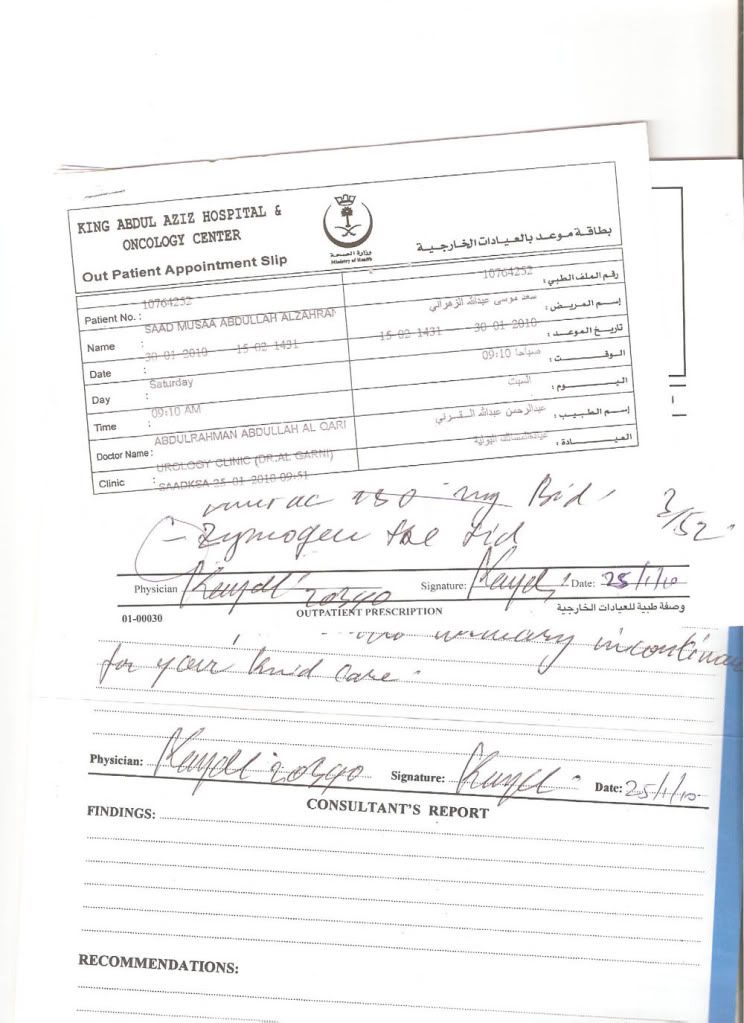 KING ABDUL AZIZ HOSPITAL &
ONCOLOGY CENTER
Out Patient Appointment Slip
وزارة الصحة
Ministry of Health
بطاقة موعد بالعيادات الخارجية
Patient No. : 10764252
10764252 رقم الملف الطبي :
Name : SAAD MUSAA ABDULLAH ALZAHRAN
إسم المريض : سعد موسى عبدالله الزهراني
Date : 30-01-2010 15-02-1431
15-02-1431 30-01-2010 تاريخ الموعد :
Day : Saturday
الوقت : صباحا 09:10
Time : 09:10 AM
اليوم : السبت
Doctor Name : ABDULRAHMAN ABDULLAH AL QARI
إسم الطبيب : عبدالرحمن عبدالله القرني
Clinic : UROLOGY CLINIC (DR.AL GARNI)
العيادة :
SAADKSA 25-01-2010 09:51
mg Bid
- Zymogen tid
2/52
Physician
Signature:
Date: 25/1/10
01-00030
OUTPATIENT PRESCRIPTION
وصفة طبية للعيادات الخارجية
for your kind care.
Physician:
Signature:
Date: 25/1/10
CONSULTANT'S REPORT
FINDINGS:
RECOMMENDATIONS: